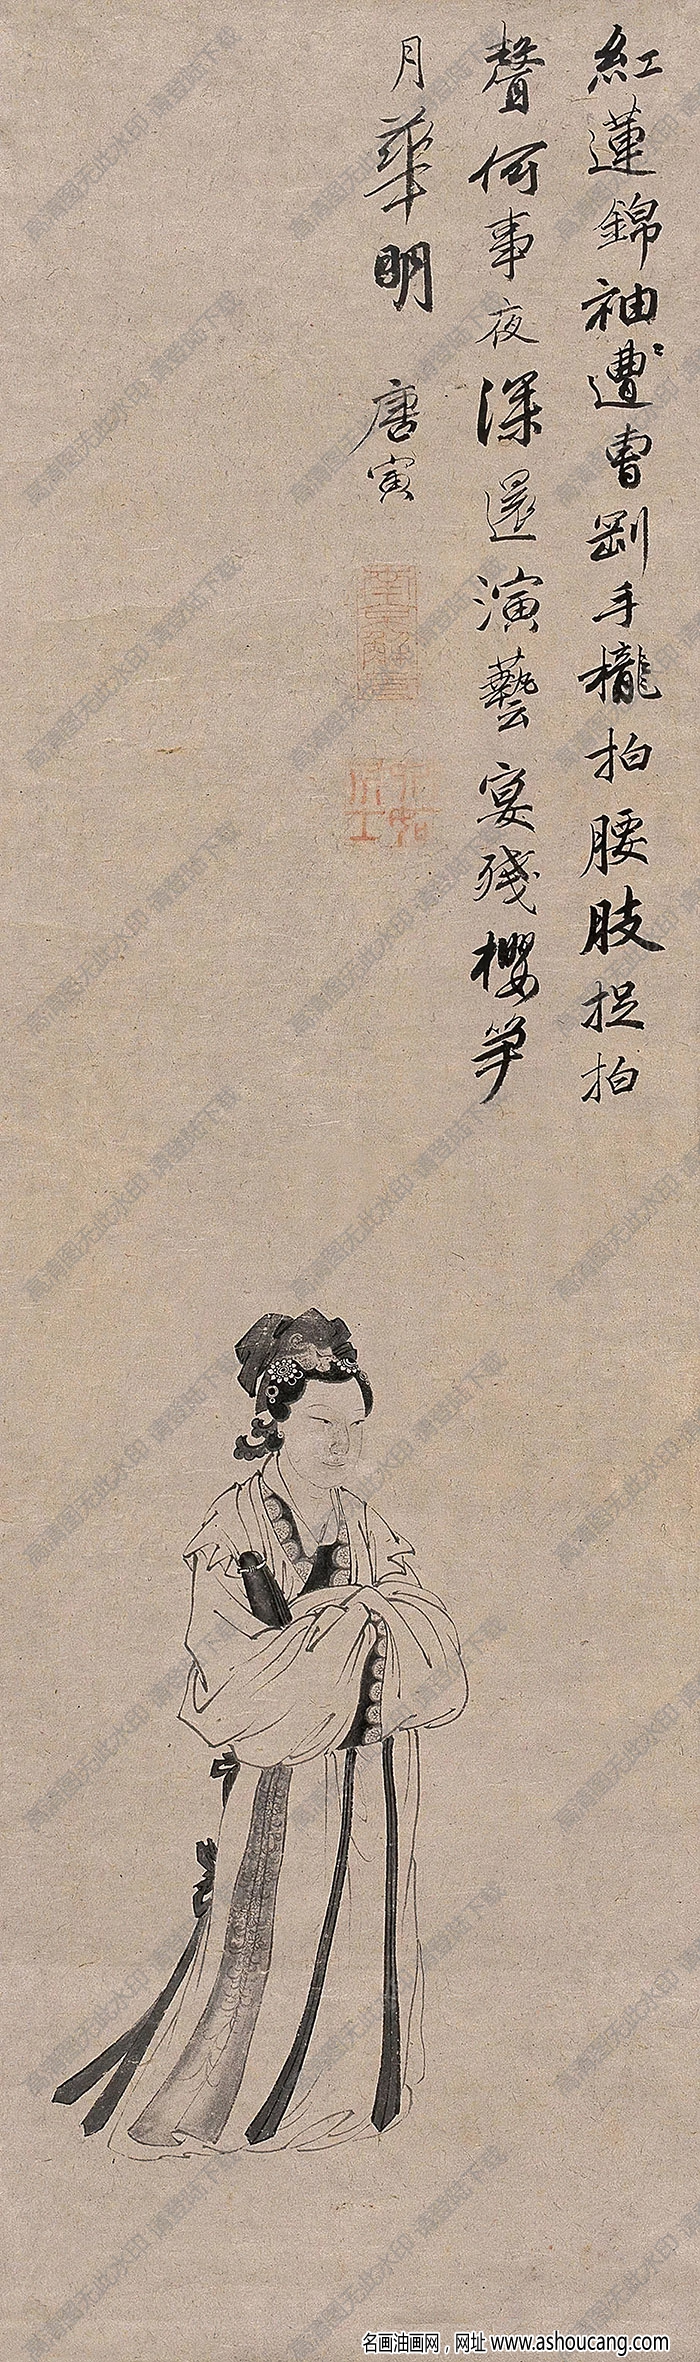 紅蓮錦袖遭曹剛手櫳拍腰肢捉拍
聲何事夜深還演藝宴殘櫻笋
月華明
唐寅
南京解元
高清图无此水印 请登陆下载
名画油画网，网址 www.ashoucang.com